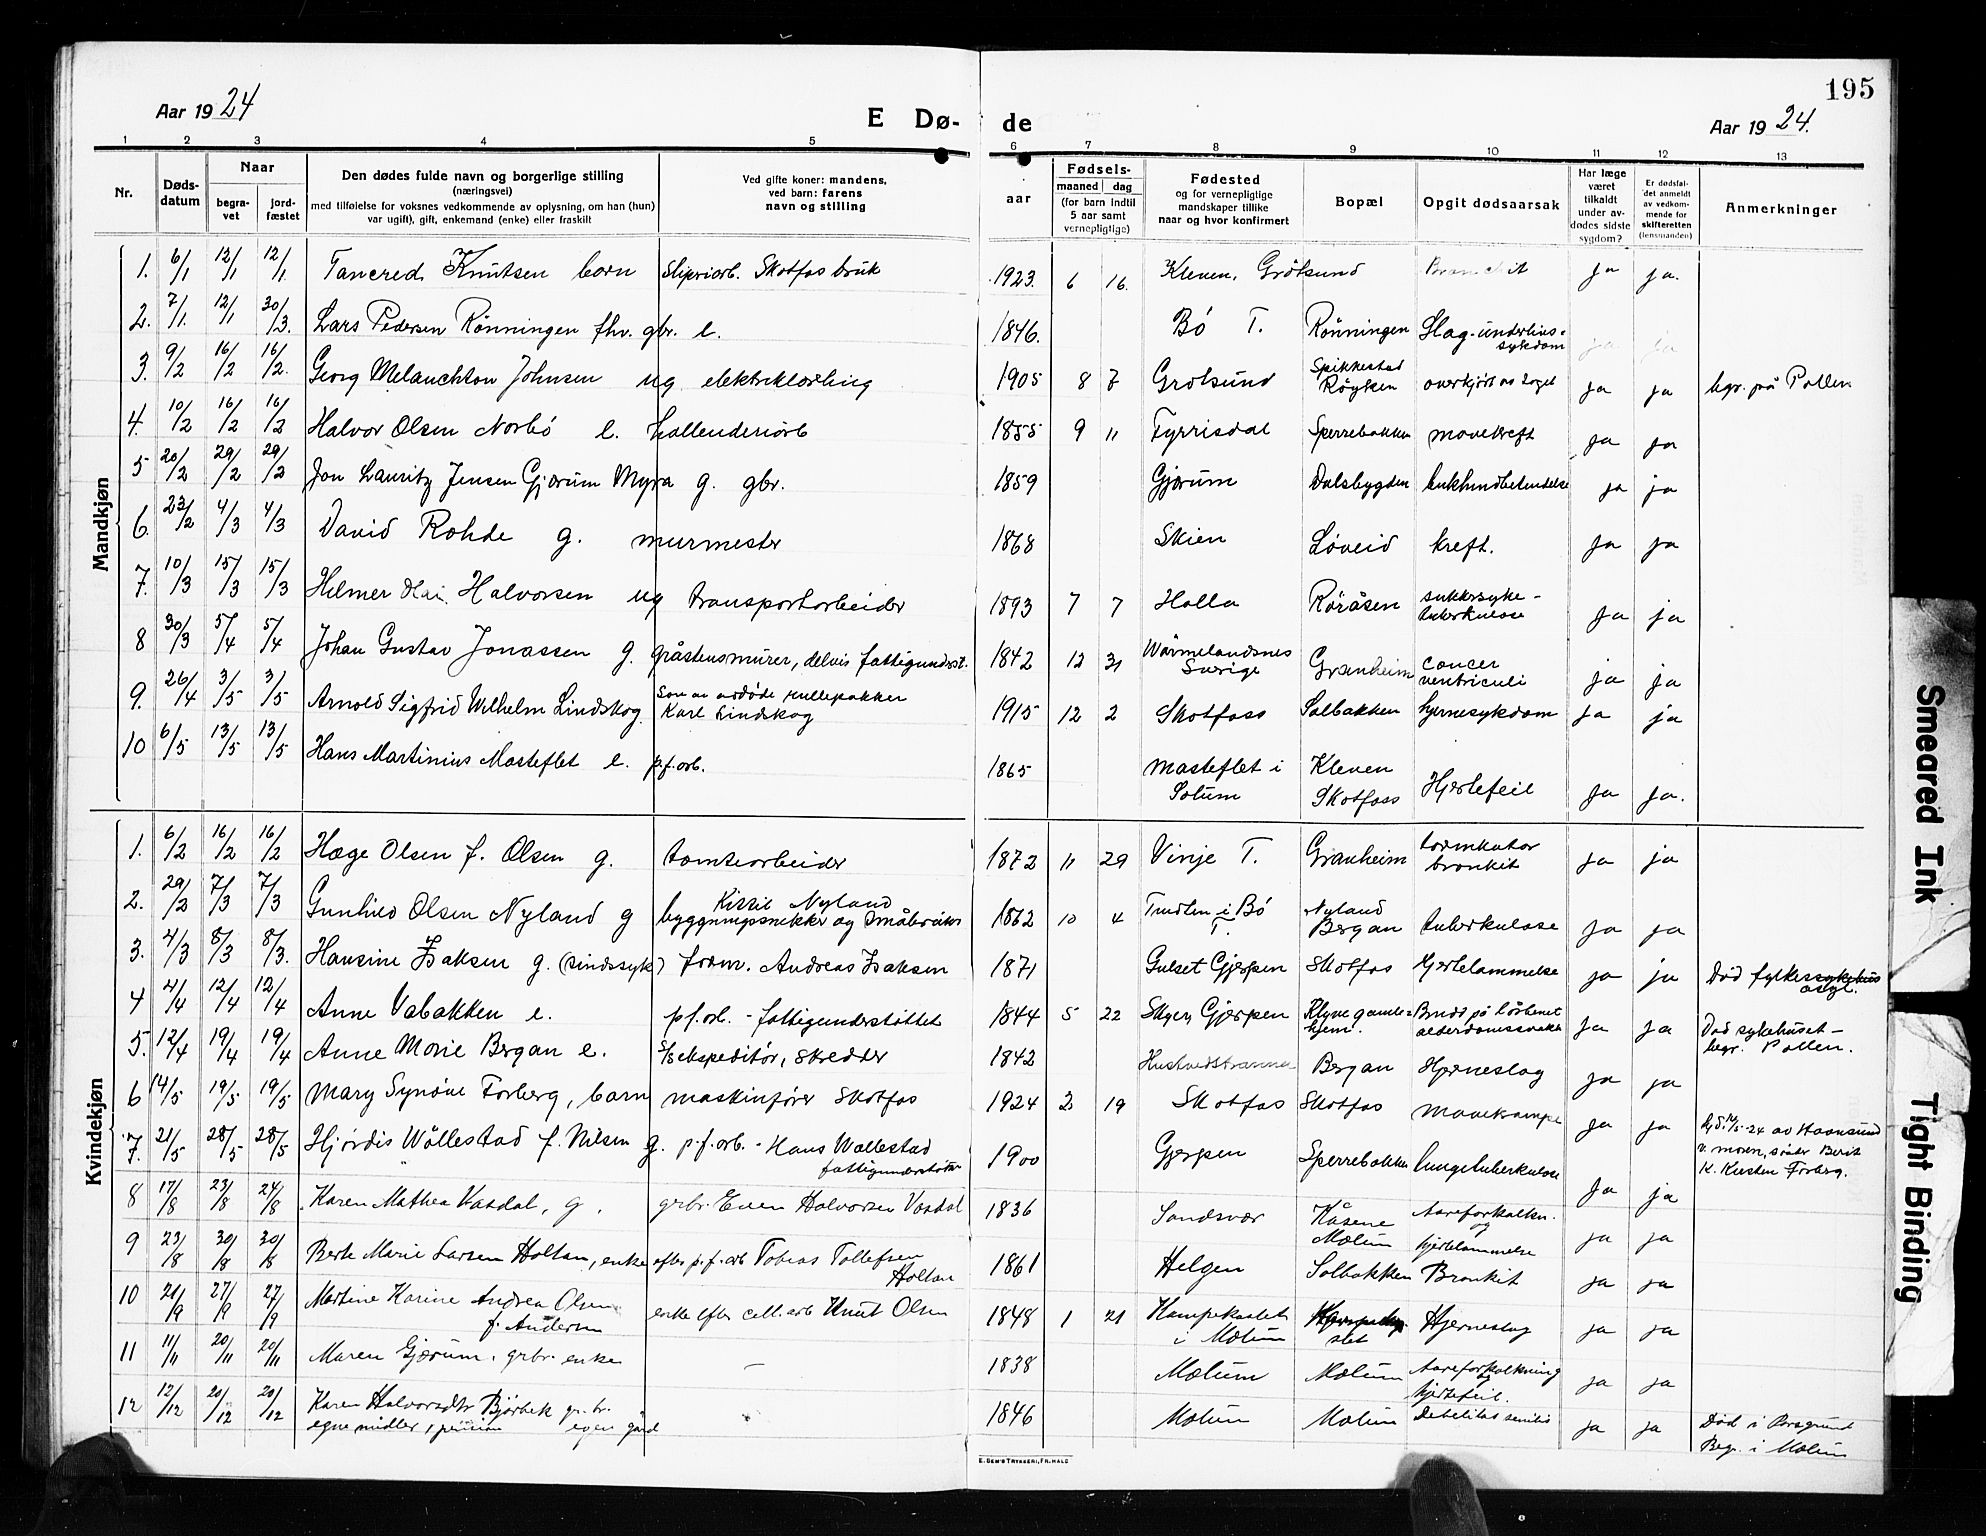 195
Aar 1924
E Dø-
de
Aar 1924.
1 2 3 4 5 6 7 8 9 10 11 12 13
Nr.
Døds-
datum
Naar
begra-
vet
jord-
fæstet
Den dødes fulde navn og borgerlige stilling
(næringsvei)
med tilføielse for voksnes vedkommende av oplysning, om han (hun)
var ugift), gift, enkemand (enke) eller fraskilt
Ved gifte koner: mandens,
ved barn: farens
navn og stilling
aar
Fødsels-
maaned dag
(for barn indtil
5 aar samt
vernepligtige)
Fødested
og for vernepligtige
mandskaper tillike
naar og hvor konfirmert
Bopæl
Opgit dødsaarsak
Har læge
været
tilkaldt
under av-
dødes sidste
sygdom?
Er dødsfal-
det anmeldt
av vedkom-
mende for
skifteretten
(lensmanden)
Anmerkninger
Mandkjøn
1. 6/1 12/1 12/1 Tancred Knutsen barn Sliperiarb. Skotfos bruk 1923. 6 16. Kleven, Gråtsund ja ja.
2. 7/1. 12/1 30/3. Lars Pedersen Rønningen fhv. gbr. e. 1846. Bö T. Rønningen Slag-underlivs-
sykdom ja ja
3. 9/2 16/2 16/2. Georg Melanchton Johnsen ug elektriklærling 1905 8 7 Grotsund Spikkestad
Røyken overkjørt av toget ja ja bgr. på Pollen
4. 10/2 16/2 16/2 Halvor Olsen Norbö e. hollenderiarb 1855 9 11 Fyrrisdal Sperrebakken mavekreft ja ja
5 20/2 29/2 29/2 Jon Lauritz Jensen Gjærum Myra g. gbr. 1859 Gjærum Dalsbygden bukhindbetendelse ja ja
6. 23/2 4/3 4/3 David Rohde g. murmester 1868 Skien Løveid kreft. ja ja
7. 10/3 15/3 15/3 Helmer Olai Halvorsen ug transportarbeider 1893 7 7 Holla Røråsen sukkersyke-
tuberkulose ja ja
8 30/3 5/4 5/4 Johan Gustav Jonassen g. gråstensmurer, delvis fattigunderst. 1842 12 31 Wärmelandsnes
Sverige Granheim cancer
ventriculi ja ja
9. 26/4 3/5 3/5 Arnold Sigfrid Wilhelm Lindskog Søn av avdøde rullepakker
Karl Lindskog 1915 12 2 Skotfoss Solbakken hjernesykdom ja ja
10 6/5 13/5 13/5 Hans Martinius Masteflet e. p.f.arb. 1865 Masteflet i
Solum Kleven
Skotfoss Hjertefeil ja ja.
Kvindekjøn
1. 6/2 16/2 16/2 Hæge Olsen f. Olsen g. tomtearbeider 1872 11 29 Vinje T. Granheim tarmkatar
bronkit ja ja
2. 29/2 7/3 7/3 Gunhild Olsen Nyland g Kittil Nyland
byggningssnekker og småbruker 1862 10 4 i Bö
T. Nyland
Bergan tuberkulose ja ja
3. 4/3 8/3 8/3. Hansine Isaksen g. (sindssyk) form. Andreas Isaksen 1871 Gulset Gjerpen Skotfos Hjertelammelse ja ja Død fylkessykehus
asyl.
4 4/4 12/4 12/4 Anne Vabakken e. pf.arb. - fattigunderstøttet 1844 5 22 Skyer, Gjerpen Klyve gamle-
hjem. Brudd på lårbenet
alderdomssvakh ja ja Død sykehuset-
5. 12/4 19/4 19/4 Anne Marie Bergan e. ekspeditør, skredder 1842 Bergan Hjerneslag ja ja begr. Pollen.
6 14/5 19/5 19/5 Mary Synøve Forberg, barn maskinfører Skotfos 1924 2 19 Skotfos Skotfos mavekrampe ja ja
7. 21/5 28/5 28/5 Hjørdis Wöllestad f. Nilsen g. p.f.arb - Hans Wöllestad
fattigunderstøtt 1900 Gjerpen Sperrebakken lungetuberkulose ja ja 14/5-24 av Haavsund
v. moren, søster Berit
K. Kirsten Forberg.
8 17/8 23/8 24/8 Karen Mathea Vasdal, g. grbr. Even Halvorsen Vasdal 1836 Sandsvær Kåsene
Mælum Aareforkalkn.
og
hjertelammelse ja ja
9 23/8 30/8 30/8 Berte Marie Larsen Holtan, enke efter p.f.arb Tobias Tollefsen
Holtan 1861 Helgen Solbakken Bronkit ja ja
10 21/9 27/9 27/9 Martine Karine Andrea Olsen
f. Andersen enke efter cell.arb Knut Olsen 1848 1 21 Kampekastet
i Mælum Hjerneslag ja ja
11 11/11 20/11 20/11 Maren Gjærum, grbr. enke — 1838 Mælum Mælum Aareforkalkning
og
hjertefeil. ja ja
12 12/12 20/12 20/12 Karen Halvorsdtr Bjørbek gr. br.
egne midler, pension egen gård - 1846 Mælum Mælum Debilitas senilis ja ja Død i Porsgrund
Begr. i Mælum
E. SEM'S TRYKKERI, FR.HALD
Smeared Ink
Tight Binding